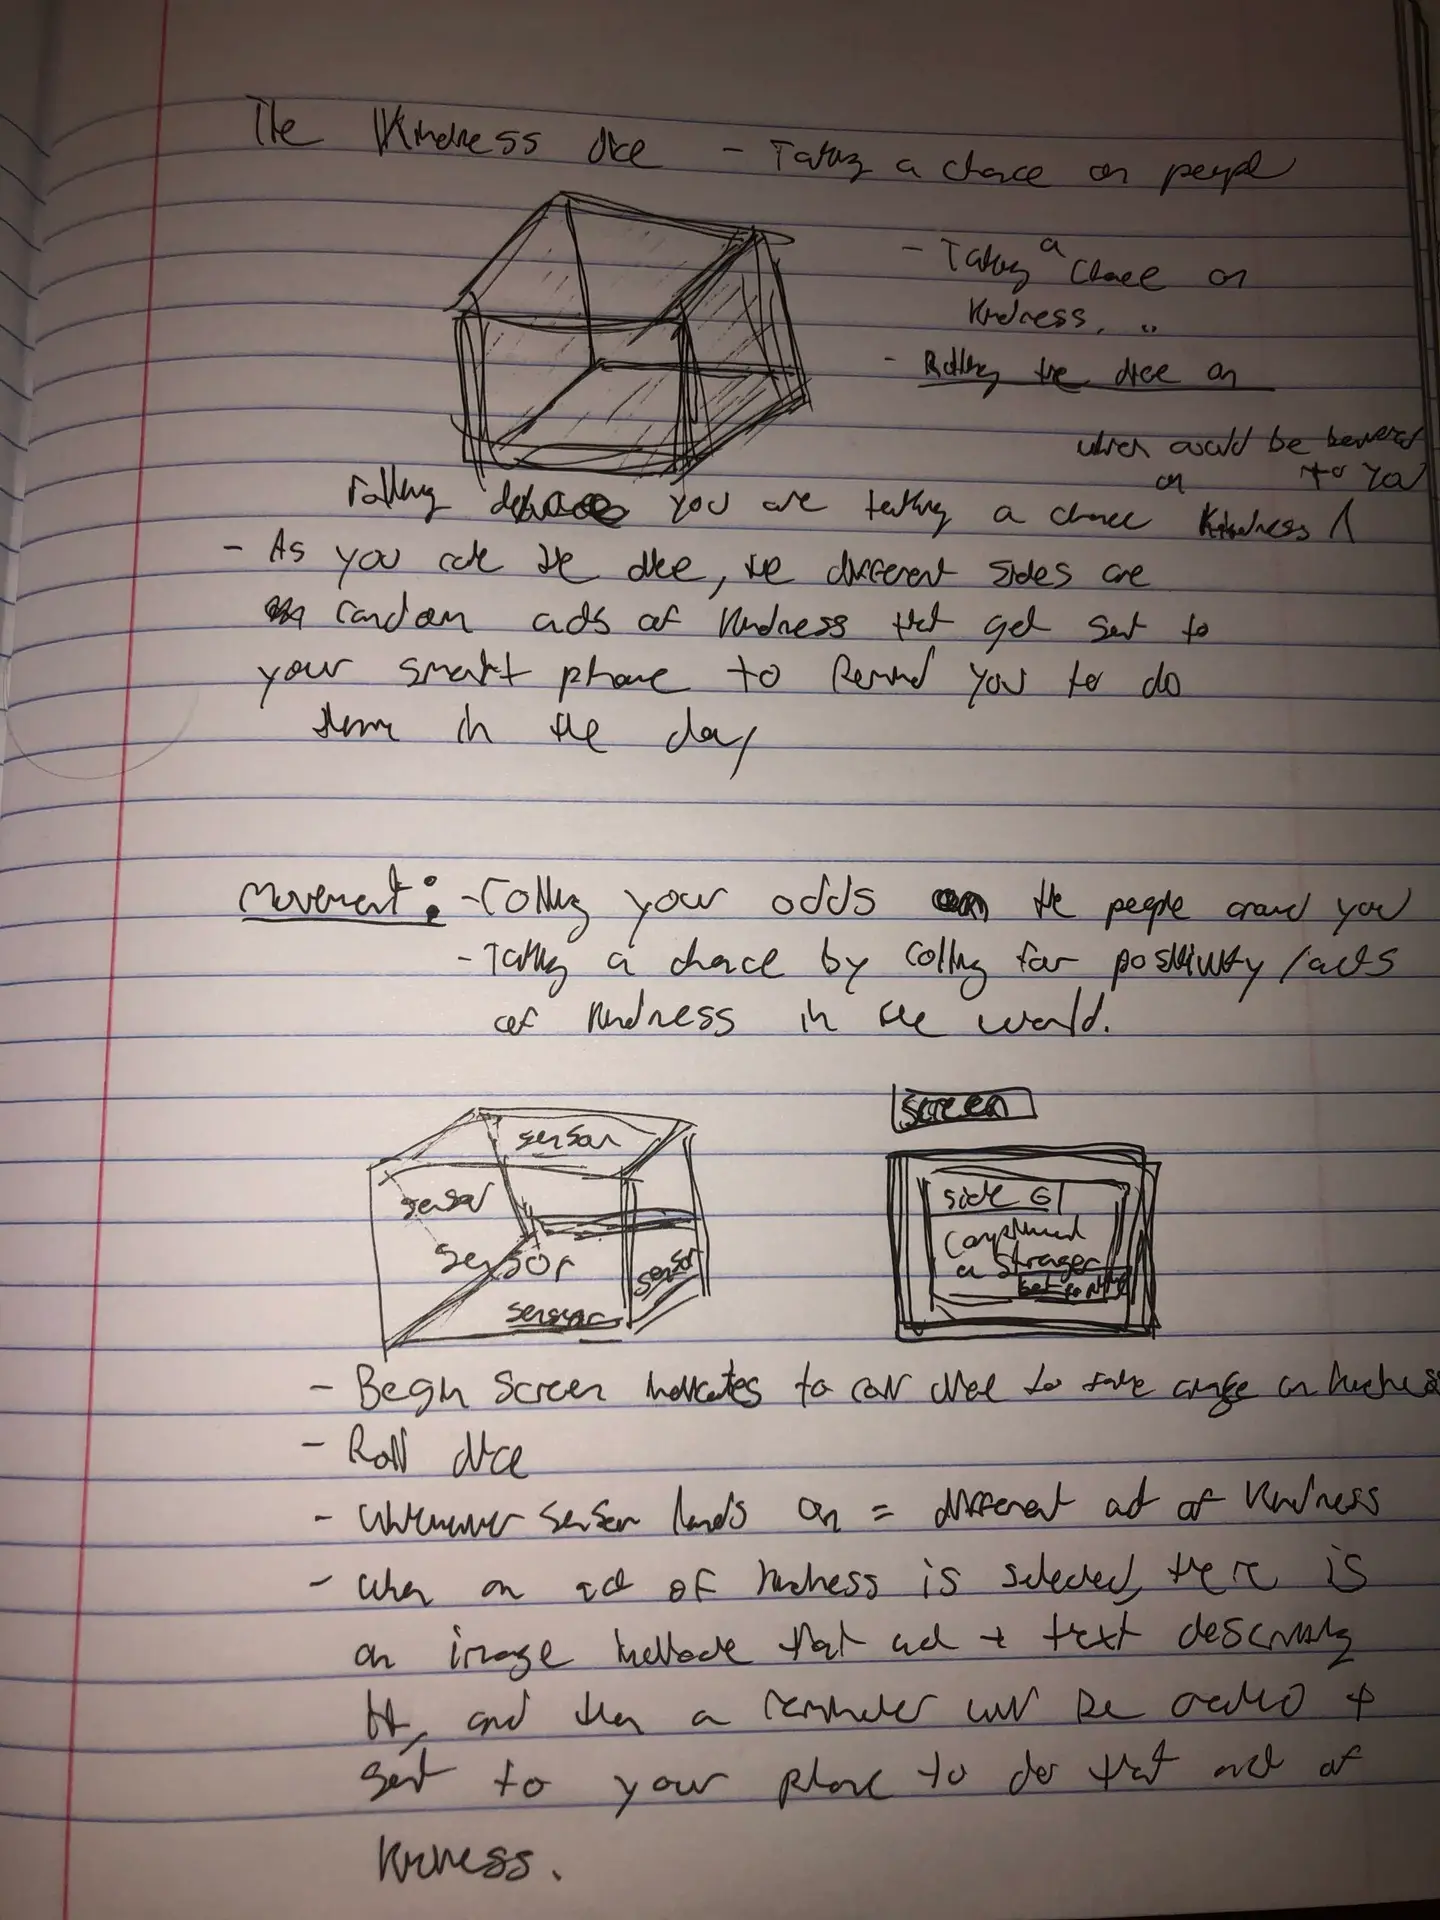 The Kindness dice - Taking a chance on people
- Taking a chance on
Kindness.
- Rolling the dice on
when would be
on to you
rolling you are taking a chance Kindness
- As you role the dice, the different sides are
random acts of kindness that get sent to
your smart phone to Remind you to do
them in the day
Movement: - rolling your odds on the people around you
- Taking a chance by rolling for positivity / acts
of kindness in the world.
screen
sensor
sensor
sensor
sensor
sensor
side 6
Compliment
a Stranger
sent to phone
- Begin Screen indicates to roll dice to take chance on kindness
- Roll dice
- Whenever sensor lands on = different act of kindness
- when an act of kindness is selected, there is
an image that act + text describing
it, and then a reminder will be created +
sent to your phone to do that act of
Kindness.